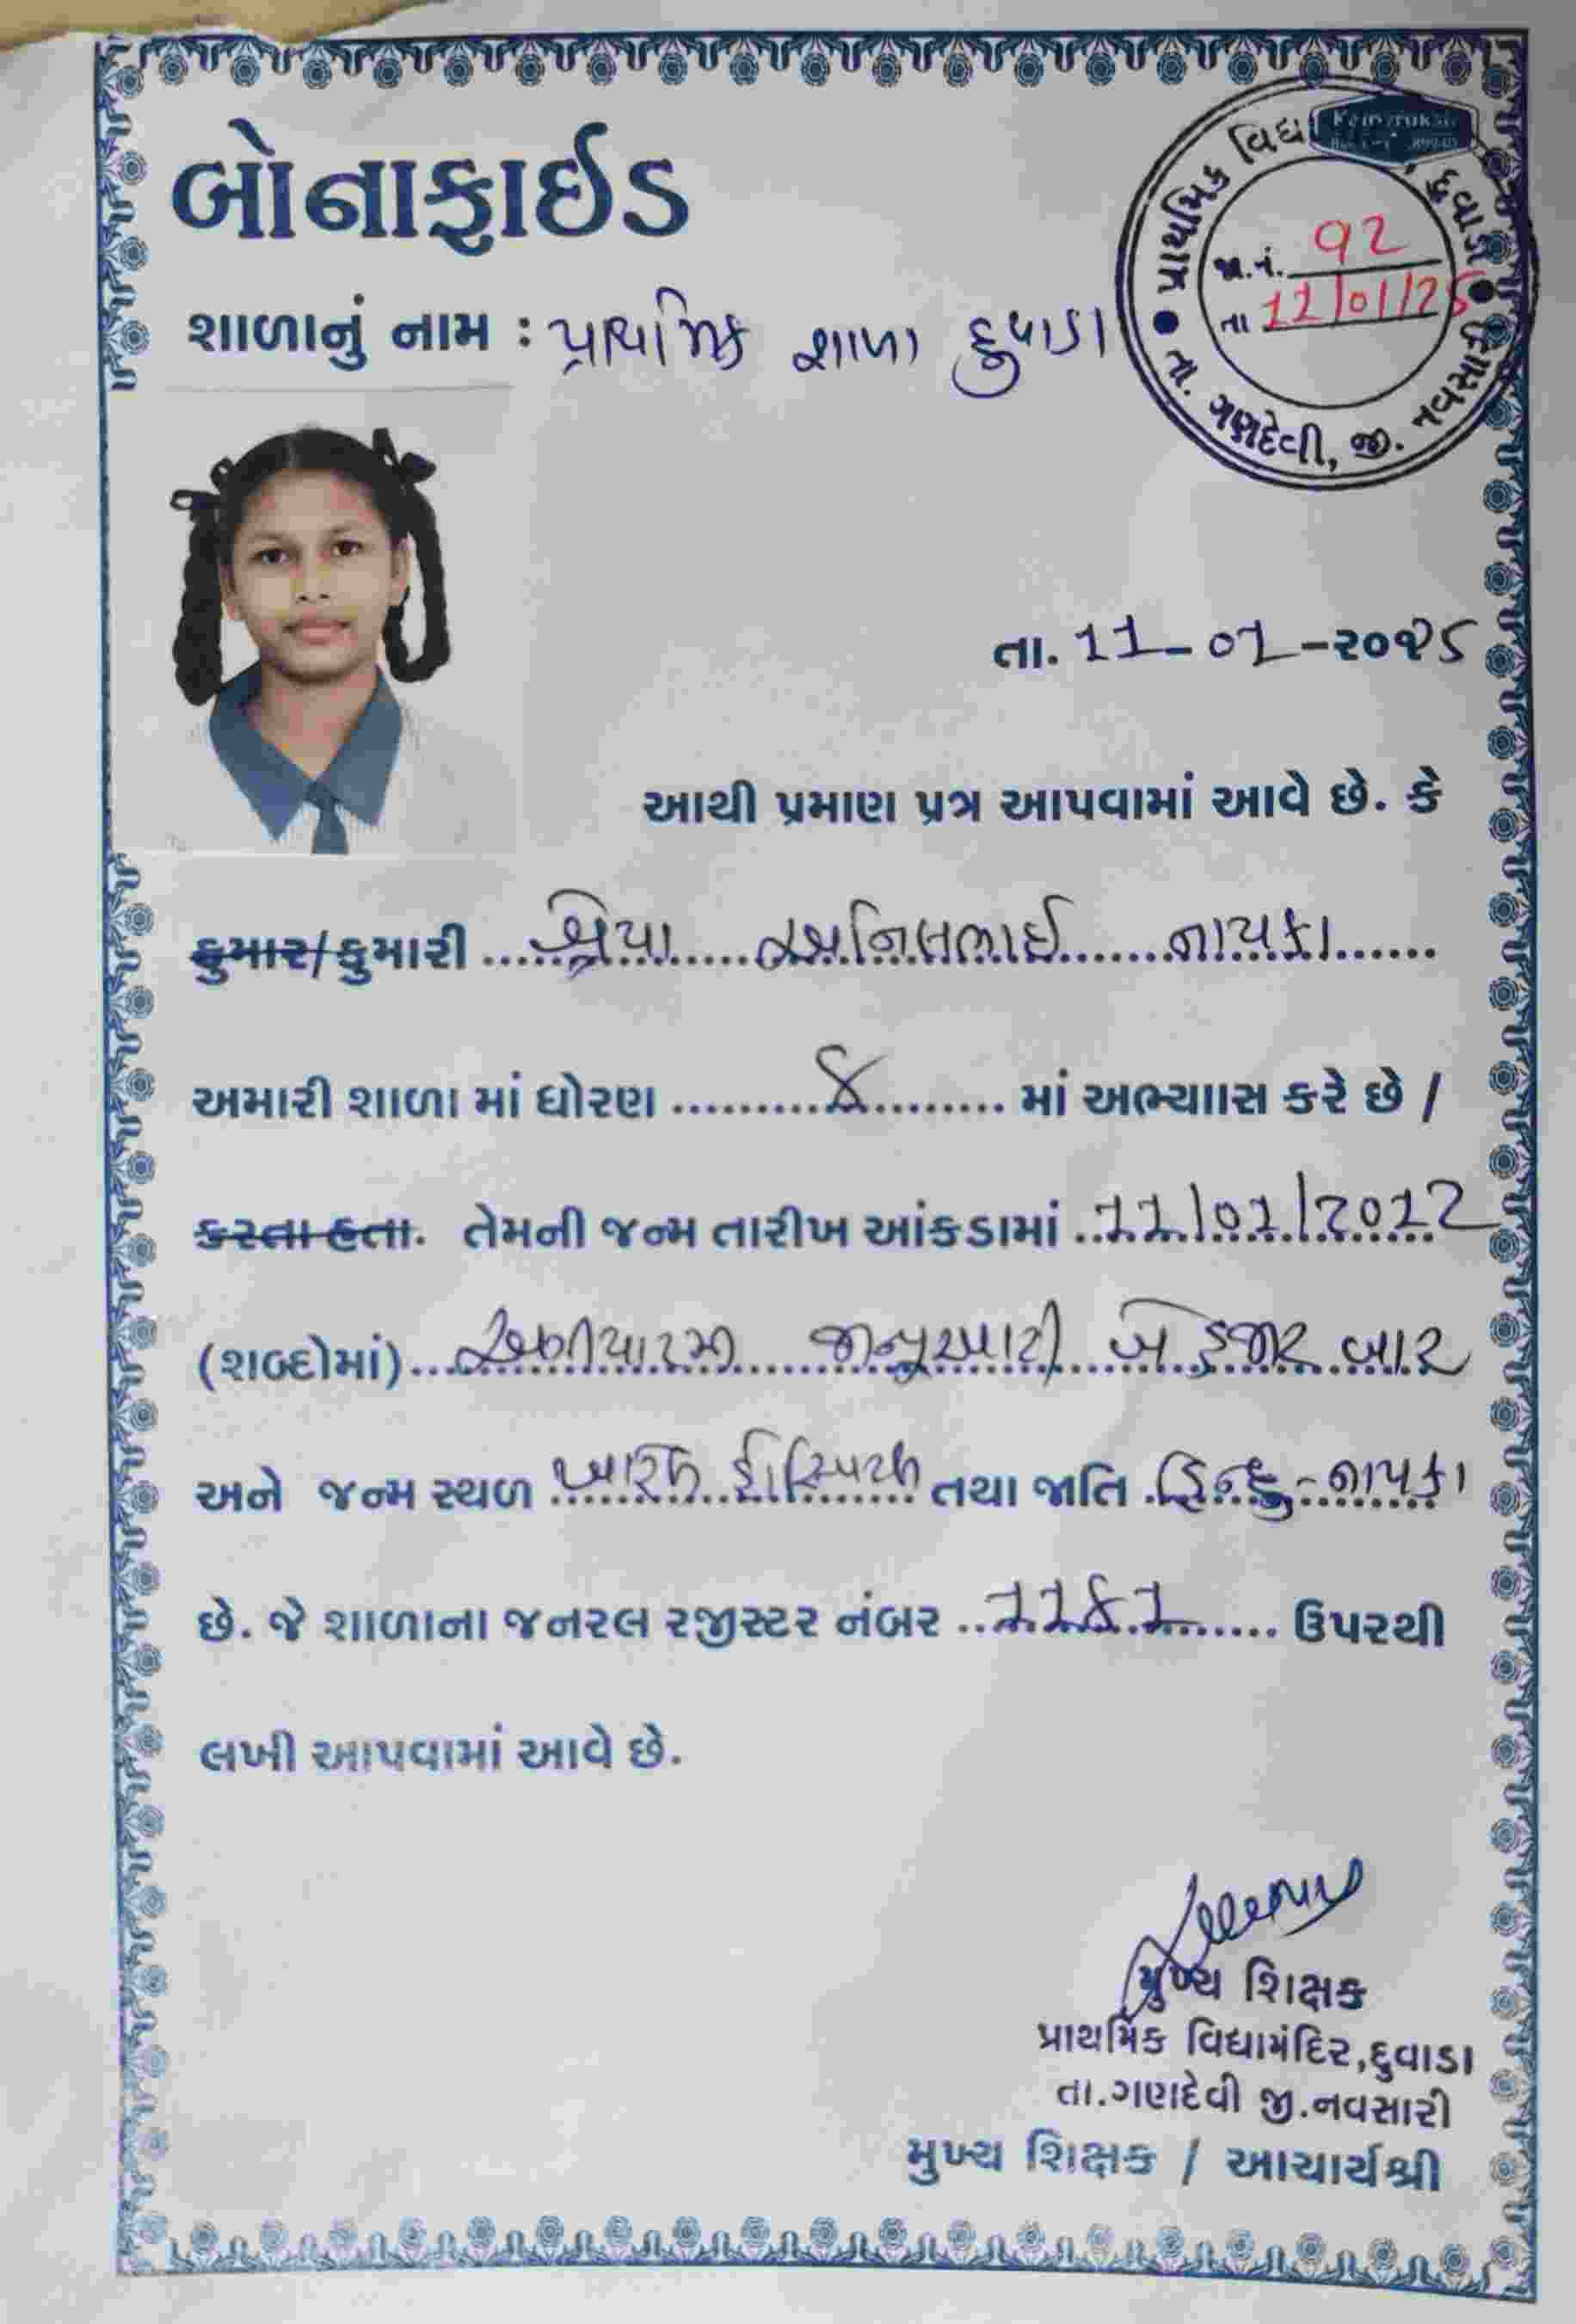 બોનાફાઈડ
પ્રાથમિક વિદ્યા , દુવાડા
જા.નં. ૧2
તા 12/01/25
તા. ગણદેવી, જી. નવસારી
શાળાનું નામ : પ્રાથમિક શાળા દુવાડા
તા. 11-01-૨૦૨5
આથી પ્રમાણ પત્ર આપવામાં આવે છે. કે
કુમાર/કુમારી ..... શ્રેયા ..... અનિલભાઈ ..... નાયકા .....
અમારી શાળા માં ધોરણ ..... ૪ ..... માં અભ્યાાસ કરે છે /
કરતા હતા. તેમની જન્મ તારીખ આંકડામાં ..11/01/2012
(શબ્દોમાં)... અગીયારમી જાન્યુઆરી બે હજાર બાર
અને જન્મ સ્થળ હોસ્પિટલ તથા જાતિ .હિન્દુ-નાયકા
છે. જે શાળાના જનરલ રજીસ્ટર નંબર ..11૪1..... ઉપરથી
લખી આપવામાં આવે છે.
મુખ્ય શિક્ષક
પ્રાથમિક વિદ્યામંદિર,દુવાડા
તા.ગણદેવી જી.નવસારી
મુખ્ય શિક્ષક / આચાર્યશ્રી